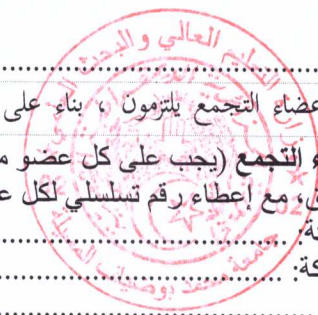 التعليم العالي و البحث
عضاء التجمع يلتزمون ، بناء على
التجمع (يجب على كل عضو م
ق، مع إعطاء رقم تسلسلي لكل ع
ة:
كة:
جامعة محمد بوضياف المسيلة